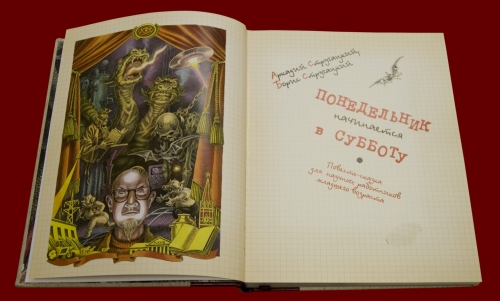 Аркадий Стругацкий,
Борис Стругацкий
ПОНЕДЕЛЬНИК
начинается
в СУББОТУ
Повесть-сказка
для научных работников
младшего возраста